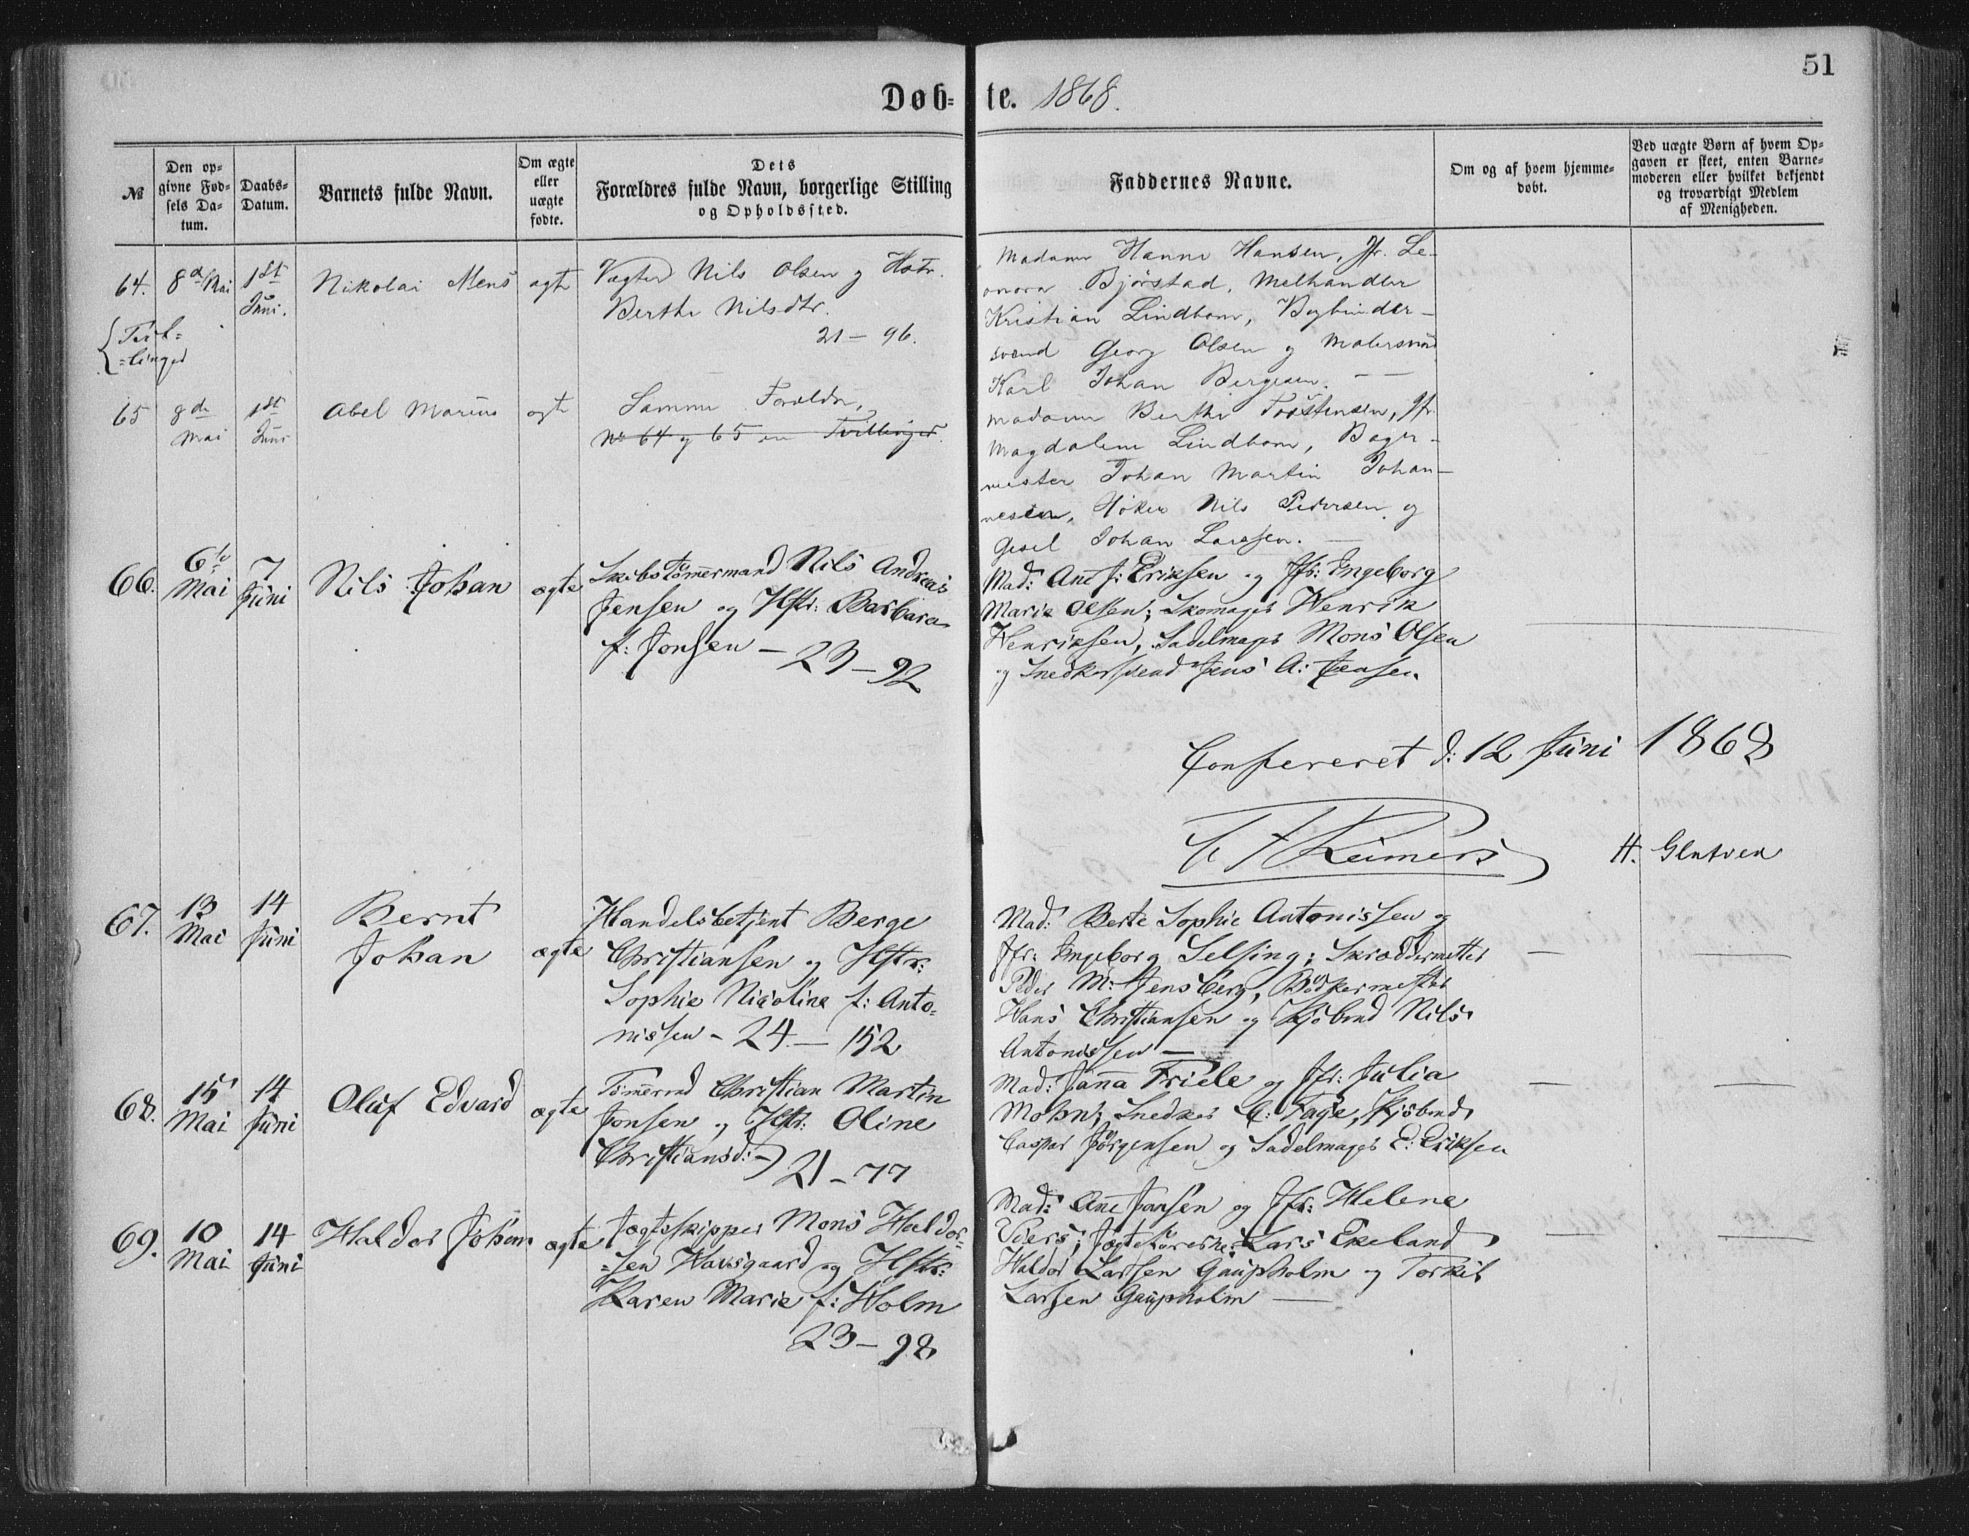 51
Døb- te. 1868.
№
Den op-
givne Fød-
sels Da-
tum.
Daabs-
Datum.
Barnets fulde Navn.
Om ægte
eller
uægte
fødte.
Dets
Forældres fulde Navn, borgerlige Stilling
og Opholdssted.
Faddernes Navne.
Om og af hvem hjemme-
døbt.
Ved uægte Børn af hvem Op-
gaven er skeet, enten Barne-
moderen eller hvilket bekjendt
og troværdigt Medlem
af Menigheden.
64.
8de Mai
1st
Juni.
Nikolai Mens
ægte
Vægter Nils Olsen og Hstr.
Berthe Nilsdtr.
21 - 96.
Madame Hanne Hansen, Jfr. Le-
onora Bjørstad, Melhandler
Kristian Lindbom, Bogbinder-
svend Georg Olsen og Malersvend
Karl Johan Bergesen. —
65
8de
Mai
1st
Juni
Abel Marius
ægte
Samme Forældre,
No 64 og 65 er Tvillinger.
Madame Berthe Torstensen, Jfr.
Magdalene Lindbom, Bager-
mester Johan Martin Johan-
nesen, Høker Nils Pedersen og
Gesel Johan Larssen. —
66.
6te
Mai
7
Juni
Nils Johan
ægte
Skibstømmermand Nils Andreas
Jensen og Hstr: Barbara
f: Jonsen - 23 - 92
Mad: Ane f: Eriksen og Jfr: Ingeborg
Marie Olsen; Skomager Henrik
Henriksen, Sadelmager Mons Olsen
og Snedkersvend Jens A: Jensen
Confereret d: 12 Juni 1868
Reimers
H.
67.
13
Mai
14
Juni
Bernt
Johan
ægte
Handelsbetjent Berge
Christiansen og Hstr:
Sophie Nicoline f: Anto-
nissen - 24 - 152
Mad: Berte Sophie Antonissen og
Jfr: Ingeborg Selsing; Skræddermester
Peder M: Jensberg, Bødkermester
Hans Christiansen og Kjøbmd Nils
Antonissen —
68.
15
Mai
14
Juni
Oluf Edvard
ægte
Tømermd Christian Martin
Jonsen og Hstr: Oline
Christiansd: -
21 - 77
Mad: Janna Friele og Jfr: Julia
Mohn; Snedker C: Faye, Kjøbmd
Caspar Jørgensen og Sadelmager E: Eriksen
69.
10
Mai
14
Juni
Haldor Johan
ægte
Jægteskipper Mons Haldor-
sen Havsgaard og Hstr:
Karen Marie f: Holm
23 - 98
Mad: Ane Jansen og Jfr: Helene
Piers; Lars Ekeland
Haldor Larsen Gaupholm og Torkil
Larsen Gaupholm —